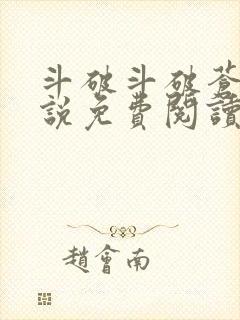 斗破斗破蒼
說免費閱讀
趙會南